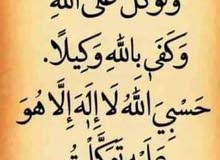 وَتَوَكَّلْ عَلَى اللَّهِ
وَكَفَىٰ بِاللَّهِ وَكِيلًا.
حَسْبِيَ اللَّهُ لَا إِلَٰهَ إِلَّا هُوَ
عَلَيْهِ تَوَكَّلْتُ